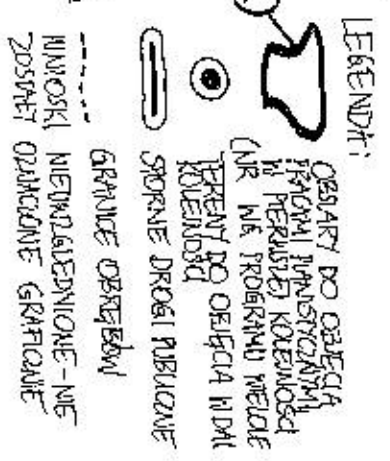 LEGENDA:
OBSZARY DO OBJĘCIA
PRACAMI PLANISTYCZNYMI
W PIERWSZEJ KOLEJNOŚCI
(NR WG PROGRAMU
TERENY DO OBJĘCIA W DAL
KOLEJNOŚCI
SPORNE DROGI PUBLICZNE
GRANICE OBRĘBÓW
WNIOSKI NIEUWZGLĘDNIONE - NIE
ZOSTAŁY OZNACZONE GRAFICZNIE